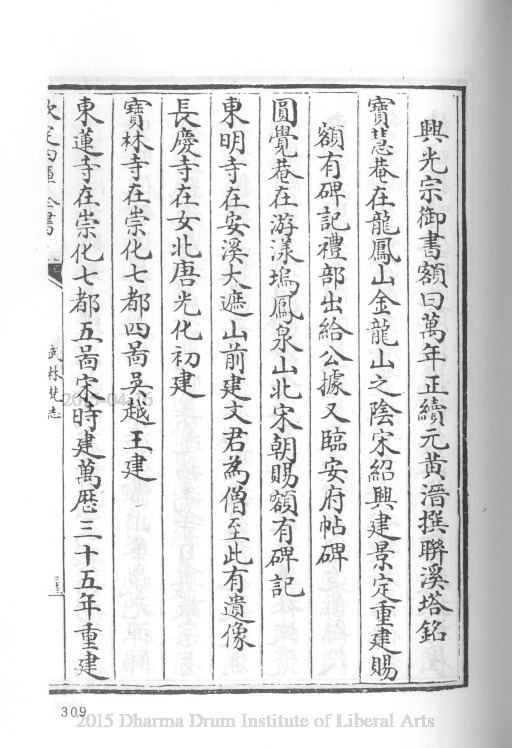 興光宗御書額曰萬年正續元黃溍撰聯溪塔銘
寶慧菴在龍鳳山金龍山之陰宋紹興建景定重建賜
額有碑記禮部出給公據又臨安府帖碑
圓覺菴在游漾塢鳳泉山北宋朝賜額有碑記
東明寺在安溪大遮山前建文君為僧至此有遺像
長慶寺在女北唐光化初建
寶林寺在崇化七都四啚吳越王建
東蓮寺在崇化七都五啚宋時建萬歷三十五年重建
武林梵志
309
2015 Dharma Drum Institute of Liberal Arts